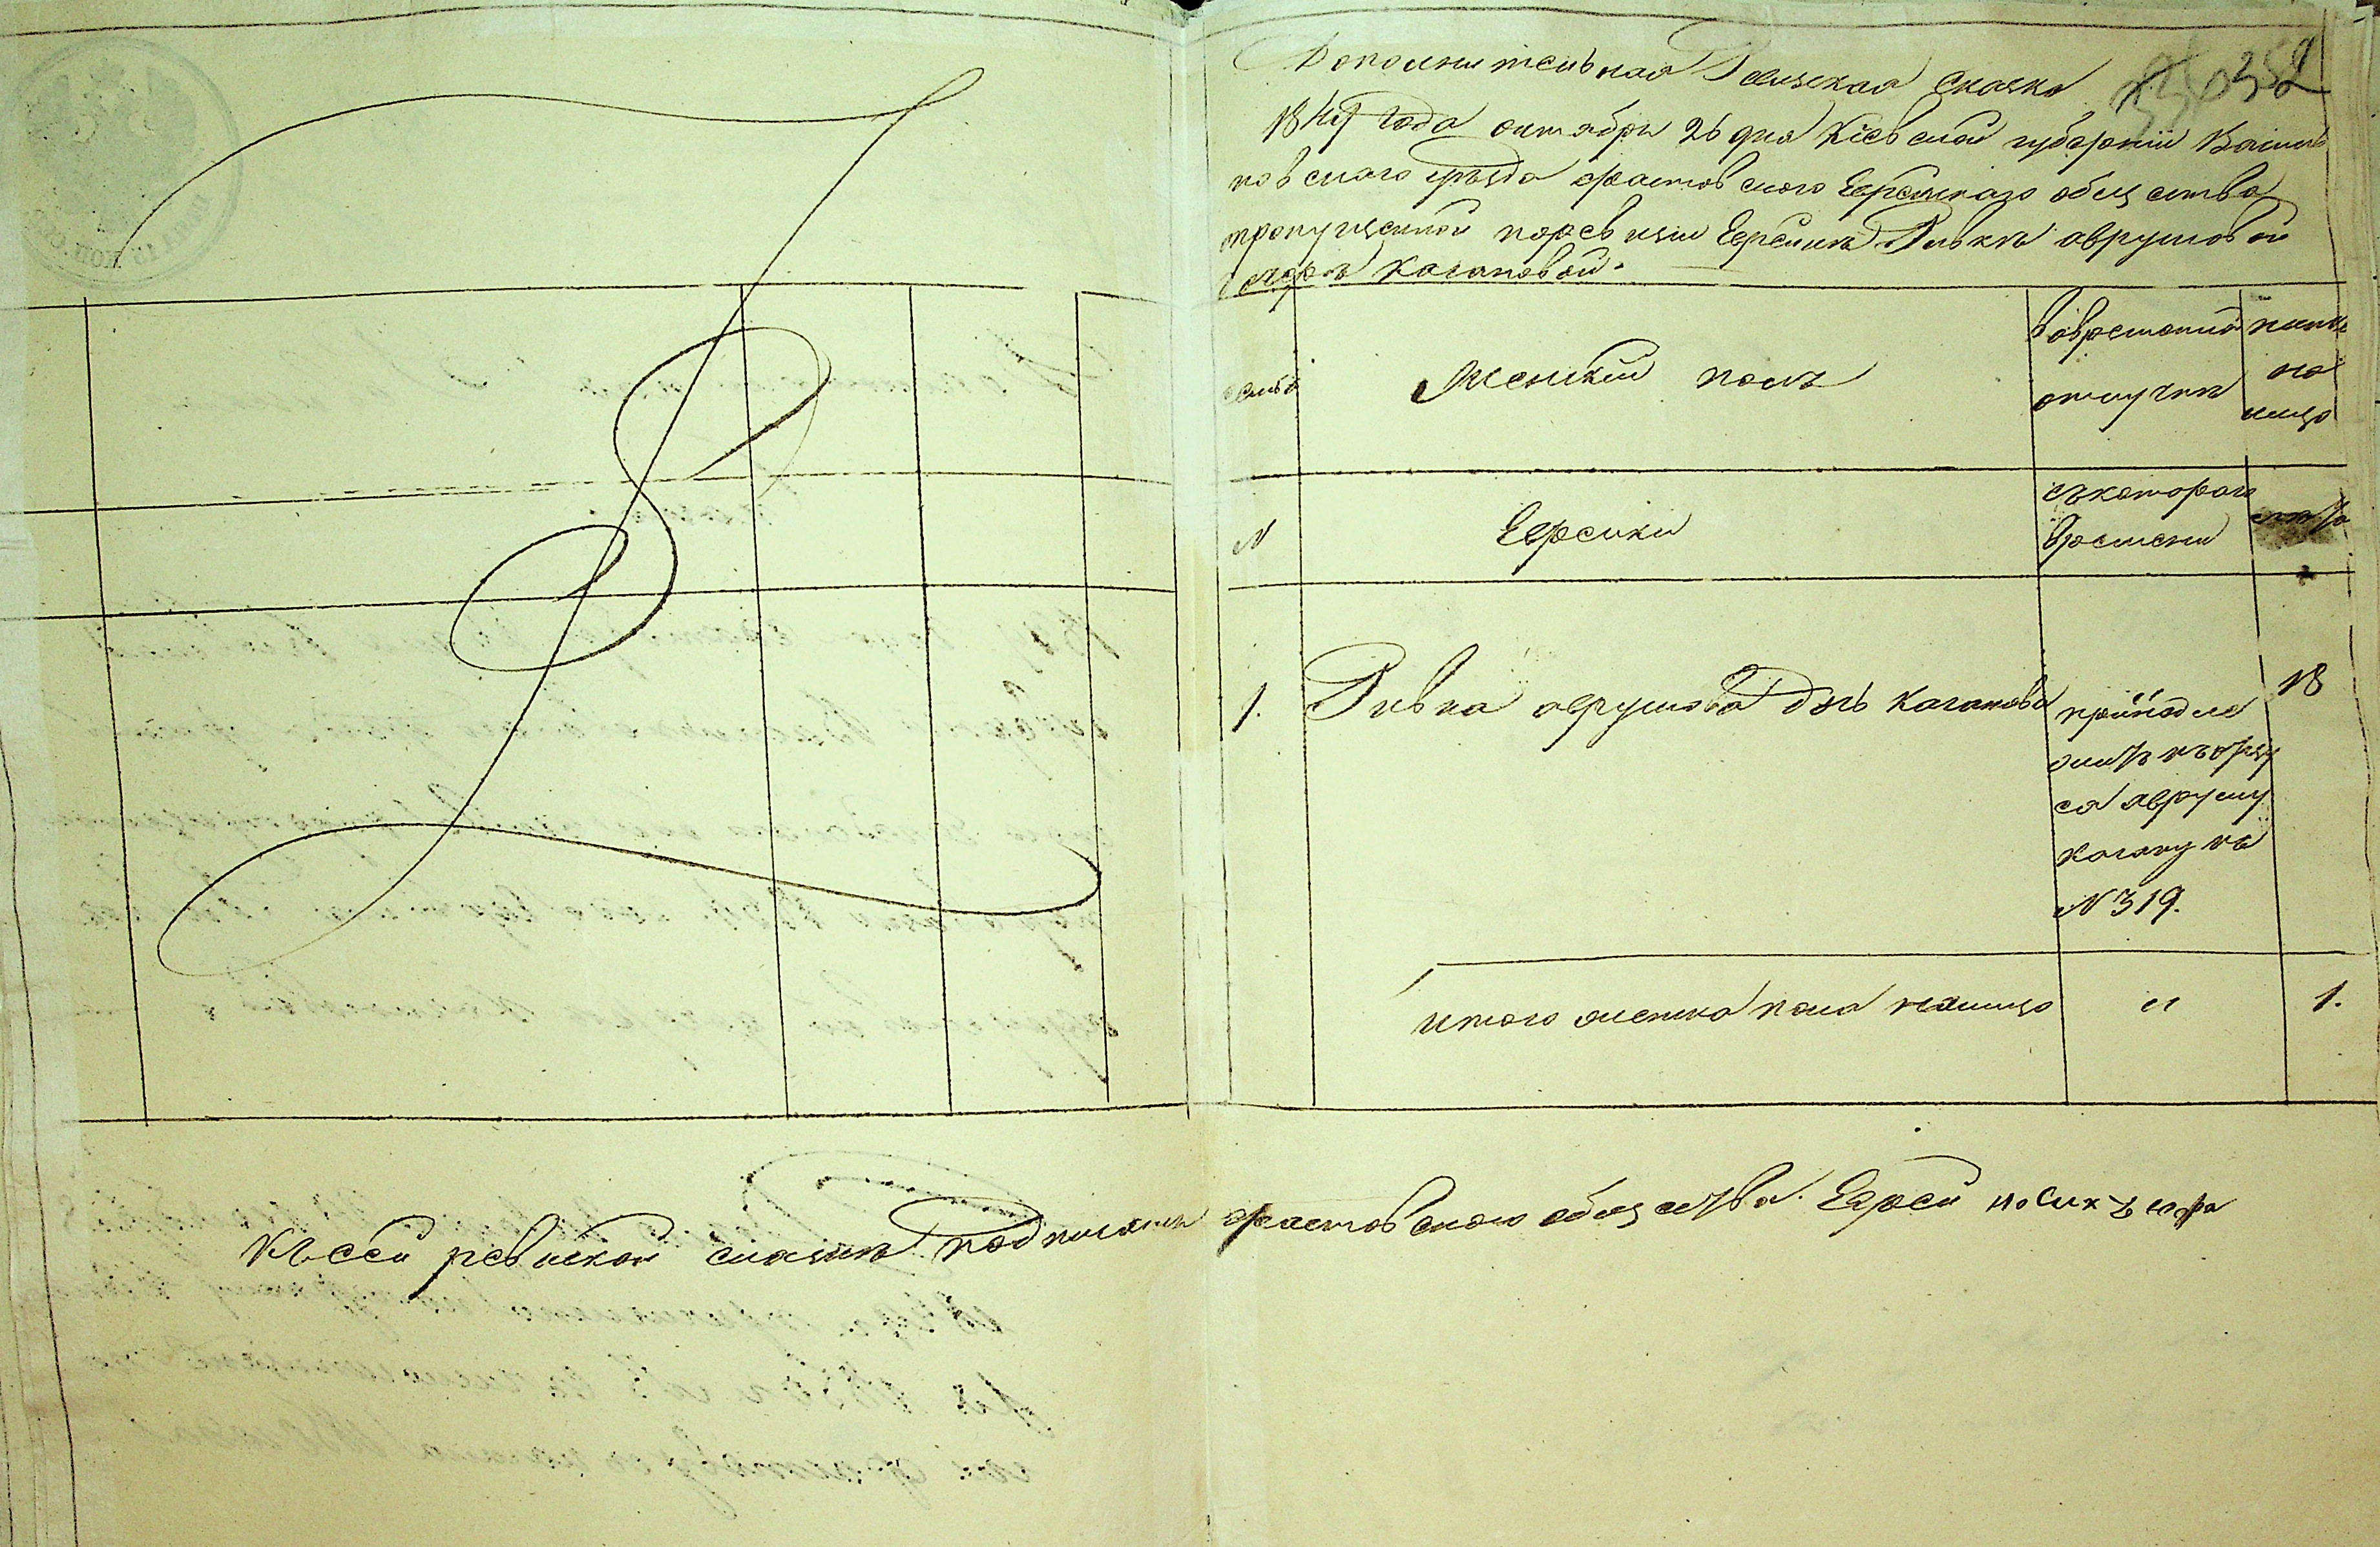 Дополнительная Ревизская Сказка
352
года октября 26 дня Кіевской губерніи Василь
ковскаго уѣзда фастовского Еврейскаго общества
пропущенной поревизіи Еврейкѣ Ривкѣ аврумовой
дочерѣ Кагановой.
семьи
Женский полъ
вовременной
отлучкѣ
ныне
на
лицо
№
Еврейки
съкотораго
времени
лета
1.
Ривка аврумова дочь Каганова
принадле
житъ къ
авруму
Кагану къ
№ 319.
18
итого женска пола налицо
"
1.
Къ сей ревиской сказкѣ подписался фастовского общества. Еврей